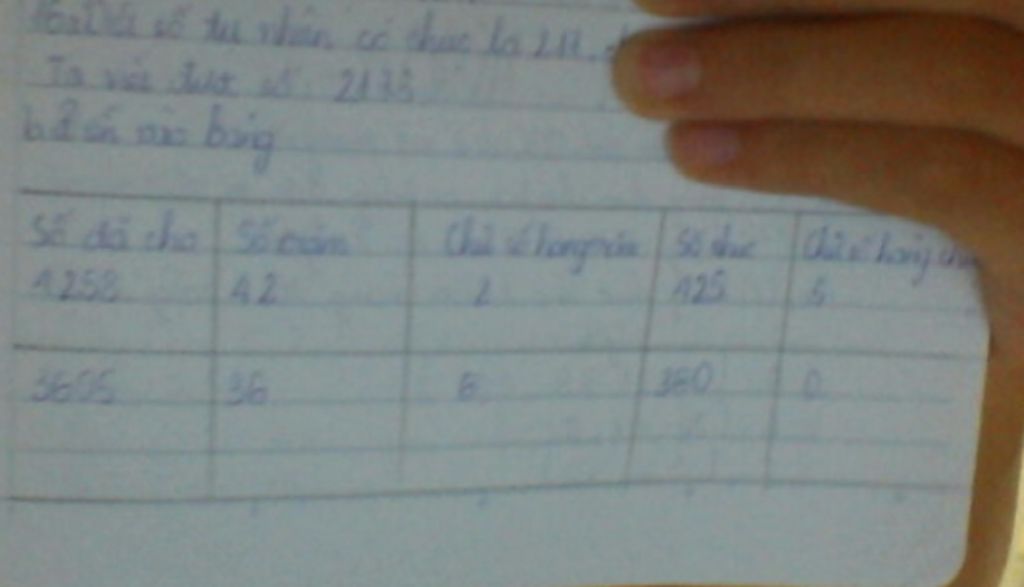 số tự nhiên có chục là 217
Ta viết được số 2173
b. Điền vào bảng
Số đã cho Số trăm Chữ số hàng trăm Số chục Chữ số hàng chục
4258 42 2 425 5
3605 36 6 360 0